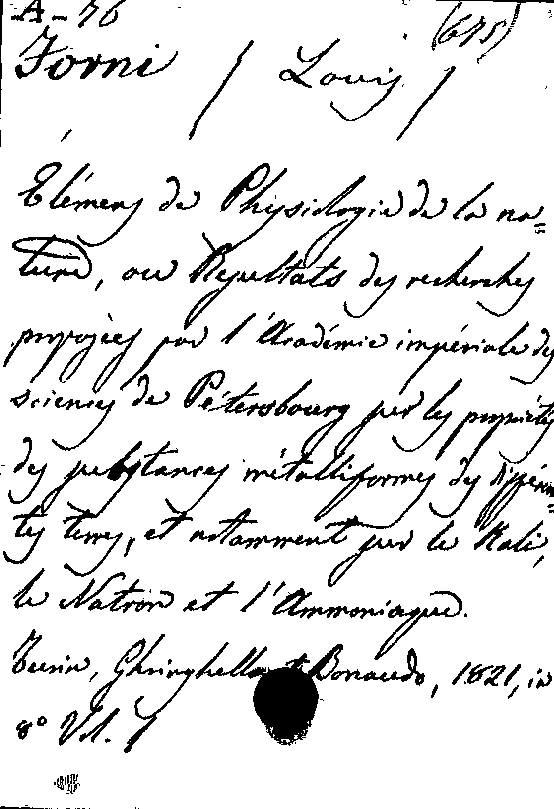 A-76 (675)
Forni / Louis /
Élémens de Physiologie de la na=
ture, ou Résultats des recherches
proposées par l'Académie impériale des
sciences de Pétersbourg sur les propriétés
des substances métalliformes des différen=
tes terres, et notamment sur le Kali,
le Natron et l'Ammoniaque.
Turin, Ghiringhello et Bonaudo, 1821, in
8° Vol. 1